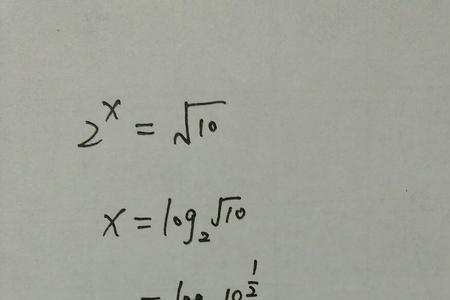 2^x = √10
x = log₂√10
= log 10^½